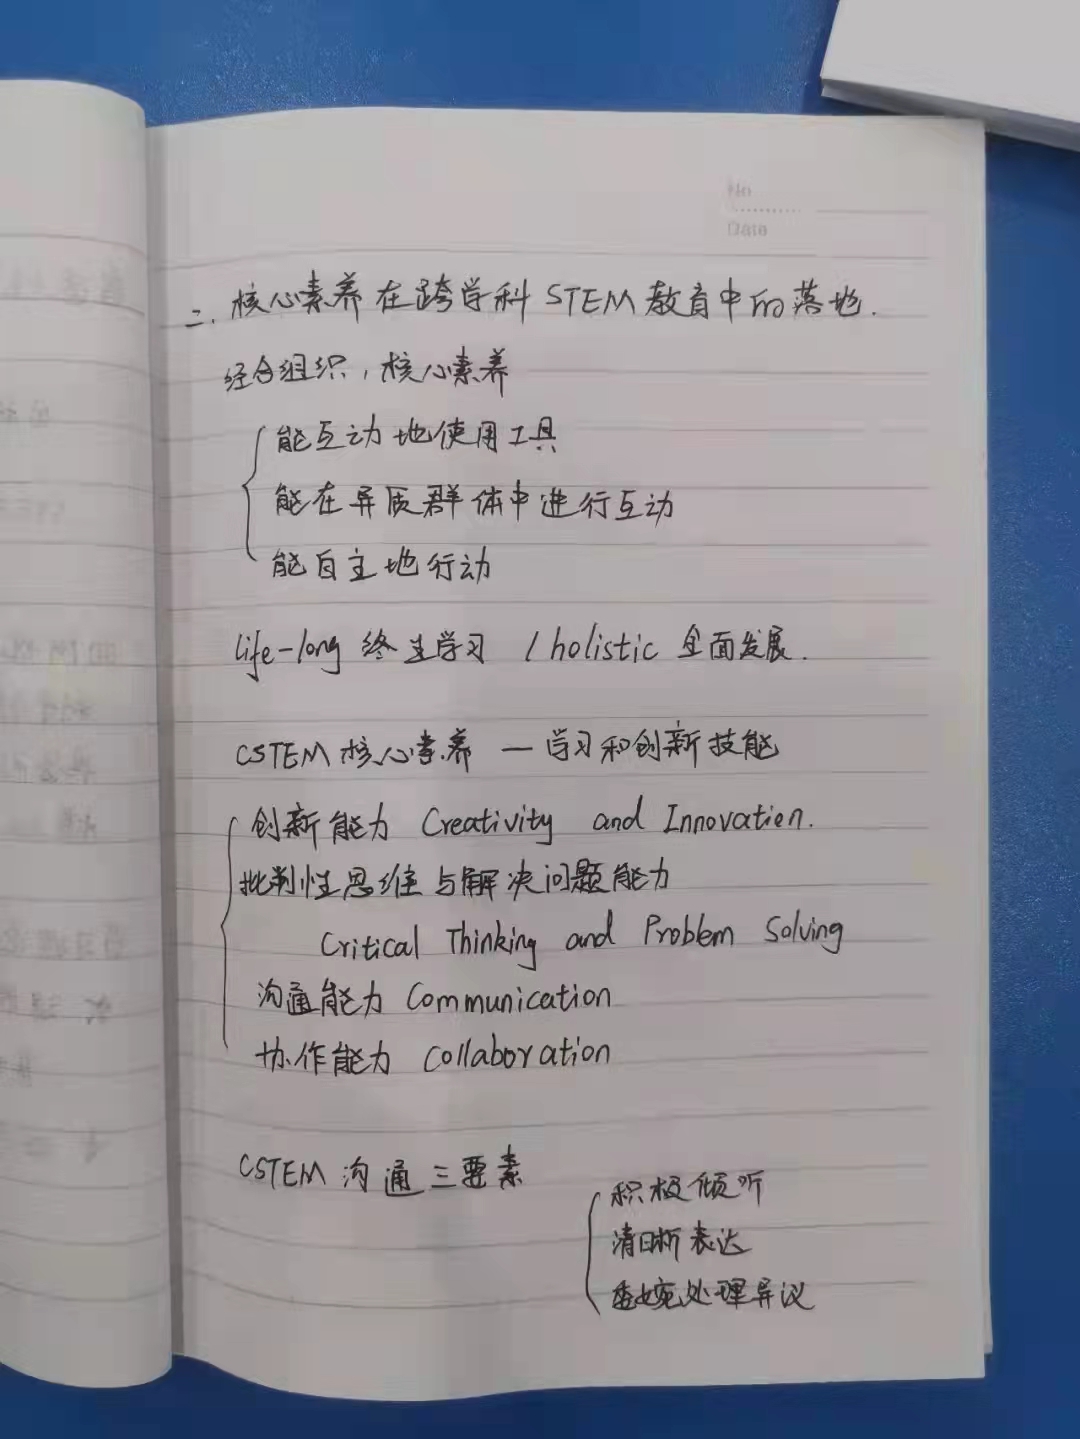 No
Date
二、核心素养在跨学科STEM教育中的落地.
经合组织，核心素养
能互动地使用工具
能在异质群体中进行互动
能自主地行动
life-long 终生学习 / holistic 全面发展.
CSTEM核心素养 — 学习和创新技能
创新能力 Creativity and Innovation.
批判性思维与解决问题能力
Critical Thinking and Problem Solving
沟通能力 Communication
协作能力 Collaboration
CSTEM沟通三要素
积极倾听
清晰表达
委婉处理异议